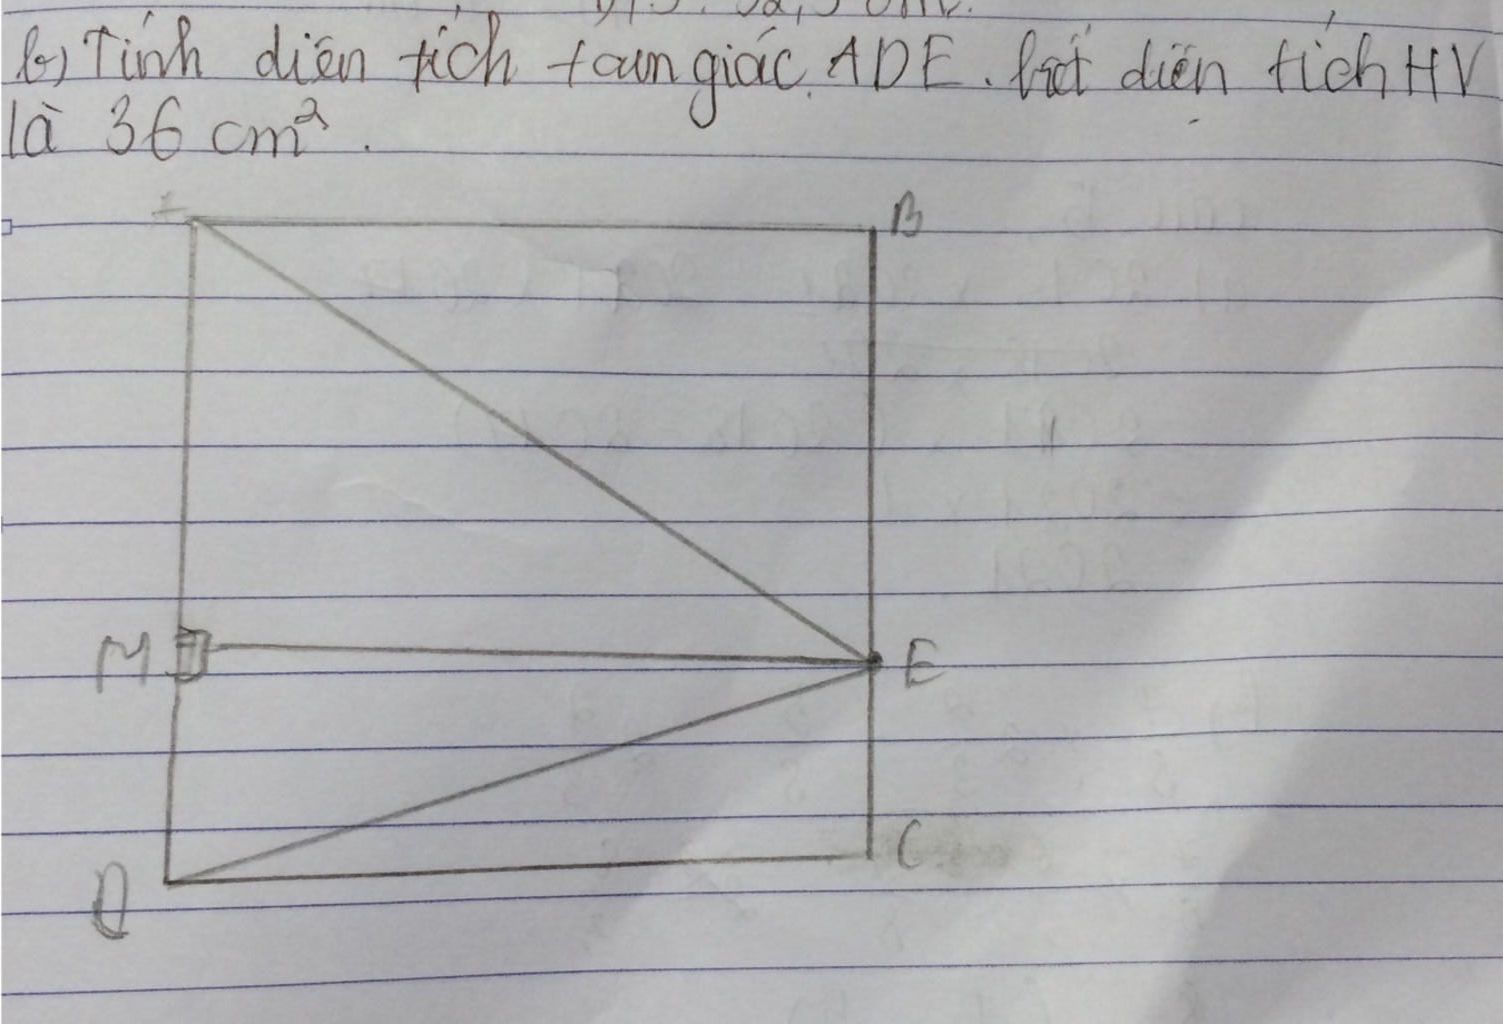 b) Tính diện tích tam giác ADE. biết diện tích HV
là 36 cm².
B
M
E
C
D